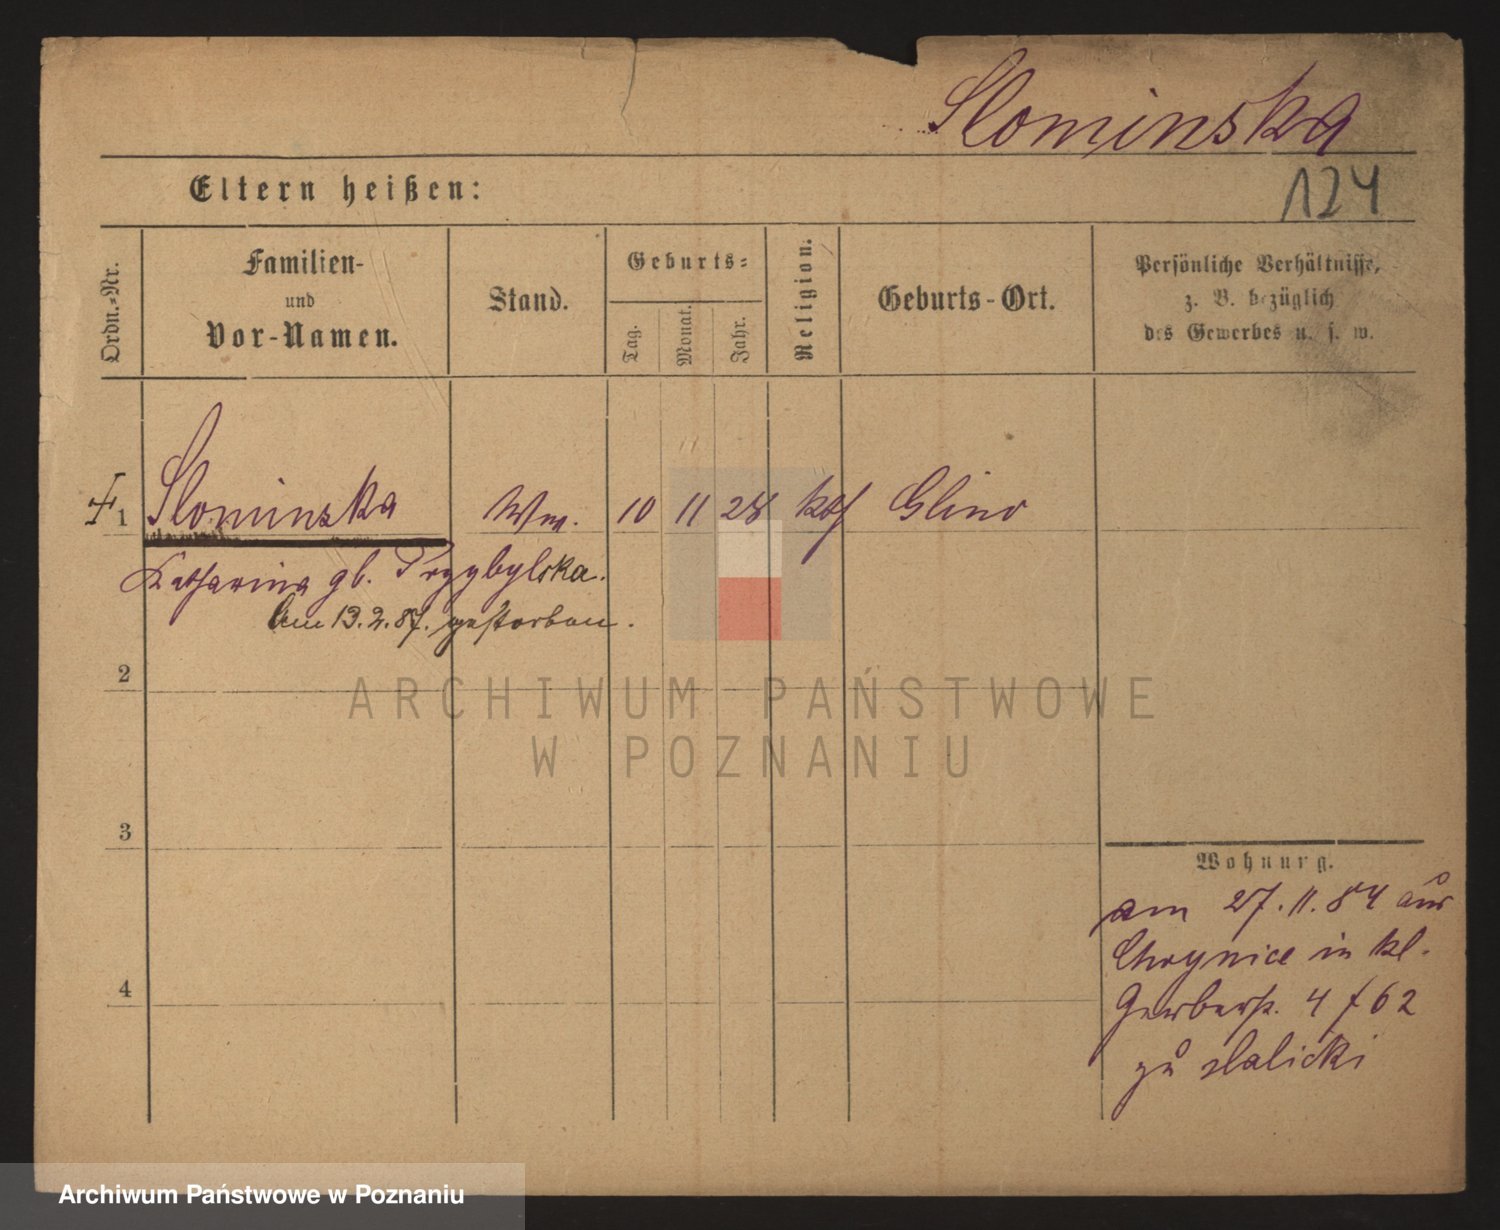 Slominska
124
Eltern heißen:
Ordn.-Nr.
Familien-
und
Vor-Namen.
Stand.
Geburts-
Tag.
Monat.
Jahr.
Religion.
Geburts-Ort.
Persönliche Verhältnisse,
z. B. bezüglich
des Gewerbes u. s. w.
1 Slominska Ww. 10 11 28 kth Glino
Katharina gb. Przybylska.
Am 13.2.87. gestorben.
2
ARCHIWUM PAŃSTWOWE
W POZNANIU
3
4
Wohnung.
am 27.11.84 aus
in kl.
Gerberst. 4 f 62
zu
Archiwum Państwowe w Poznaniu